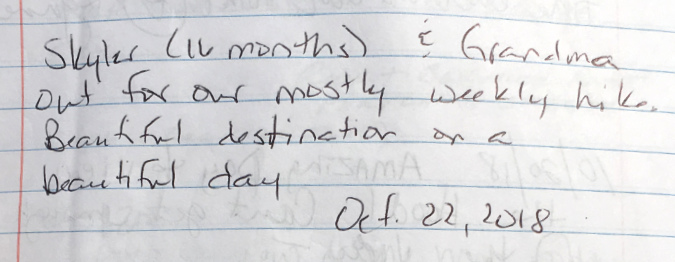 Skyler (16 months) & Grandma
out for our mostly weekly hike.
Beautiful destination on a
beautiful day
Oct. 22, 2018
10/20/18 AMAZING